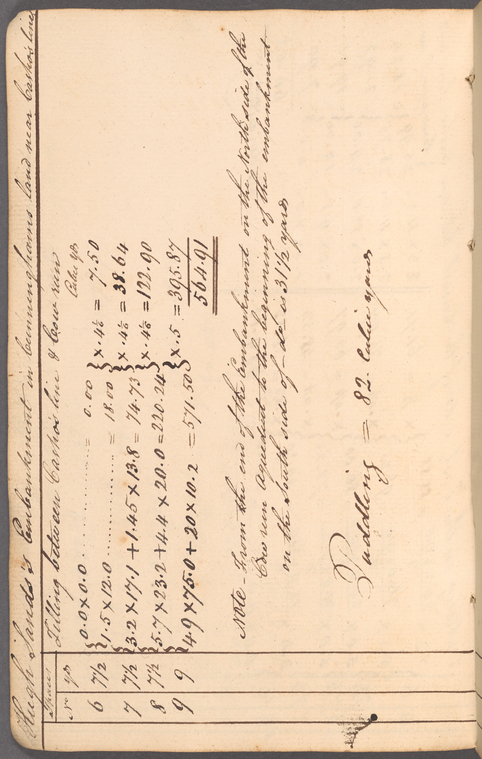 Hugh Sands's Embankment in Cunninghams land near Cashos line
Space
No yds
Filling between Cashos line & Cow run
Cubic yds
0.0 x 0.0 = 0.00
6 7 1/2 1.5 x 12.0 = 18.00 } x .4 1/6 = 7.50
7 7 1/2 3.2 x 17.1 + 1.45 x 13.8 = 74.73 } x .4 1/6 = 38.64
8 7 1/2 5.7 x 23.2 + 4.4 x 20.0 = 220.24 } x .4 1/6 = 122.90
9 9 4.9 x 75.0 + 20 x 10.2 = 571.50 } x .5 = 395.87
564.91
Note - From the end of the Embankment on the North side of the
Cow run aqueduct to the beginning of the embankment
on the South side of do is 31 1/2 yards
Puddling = 82 Cubic yards